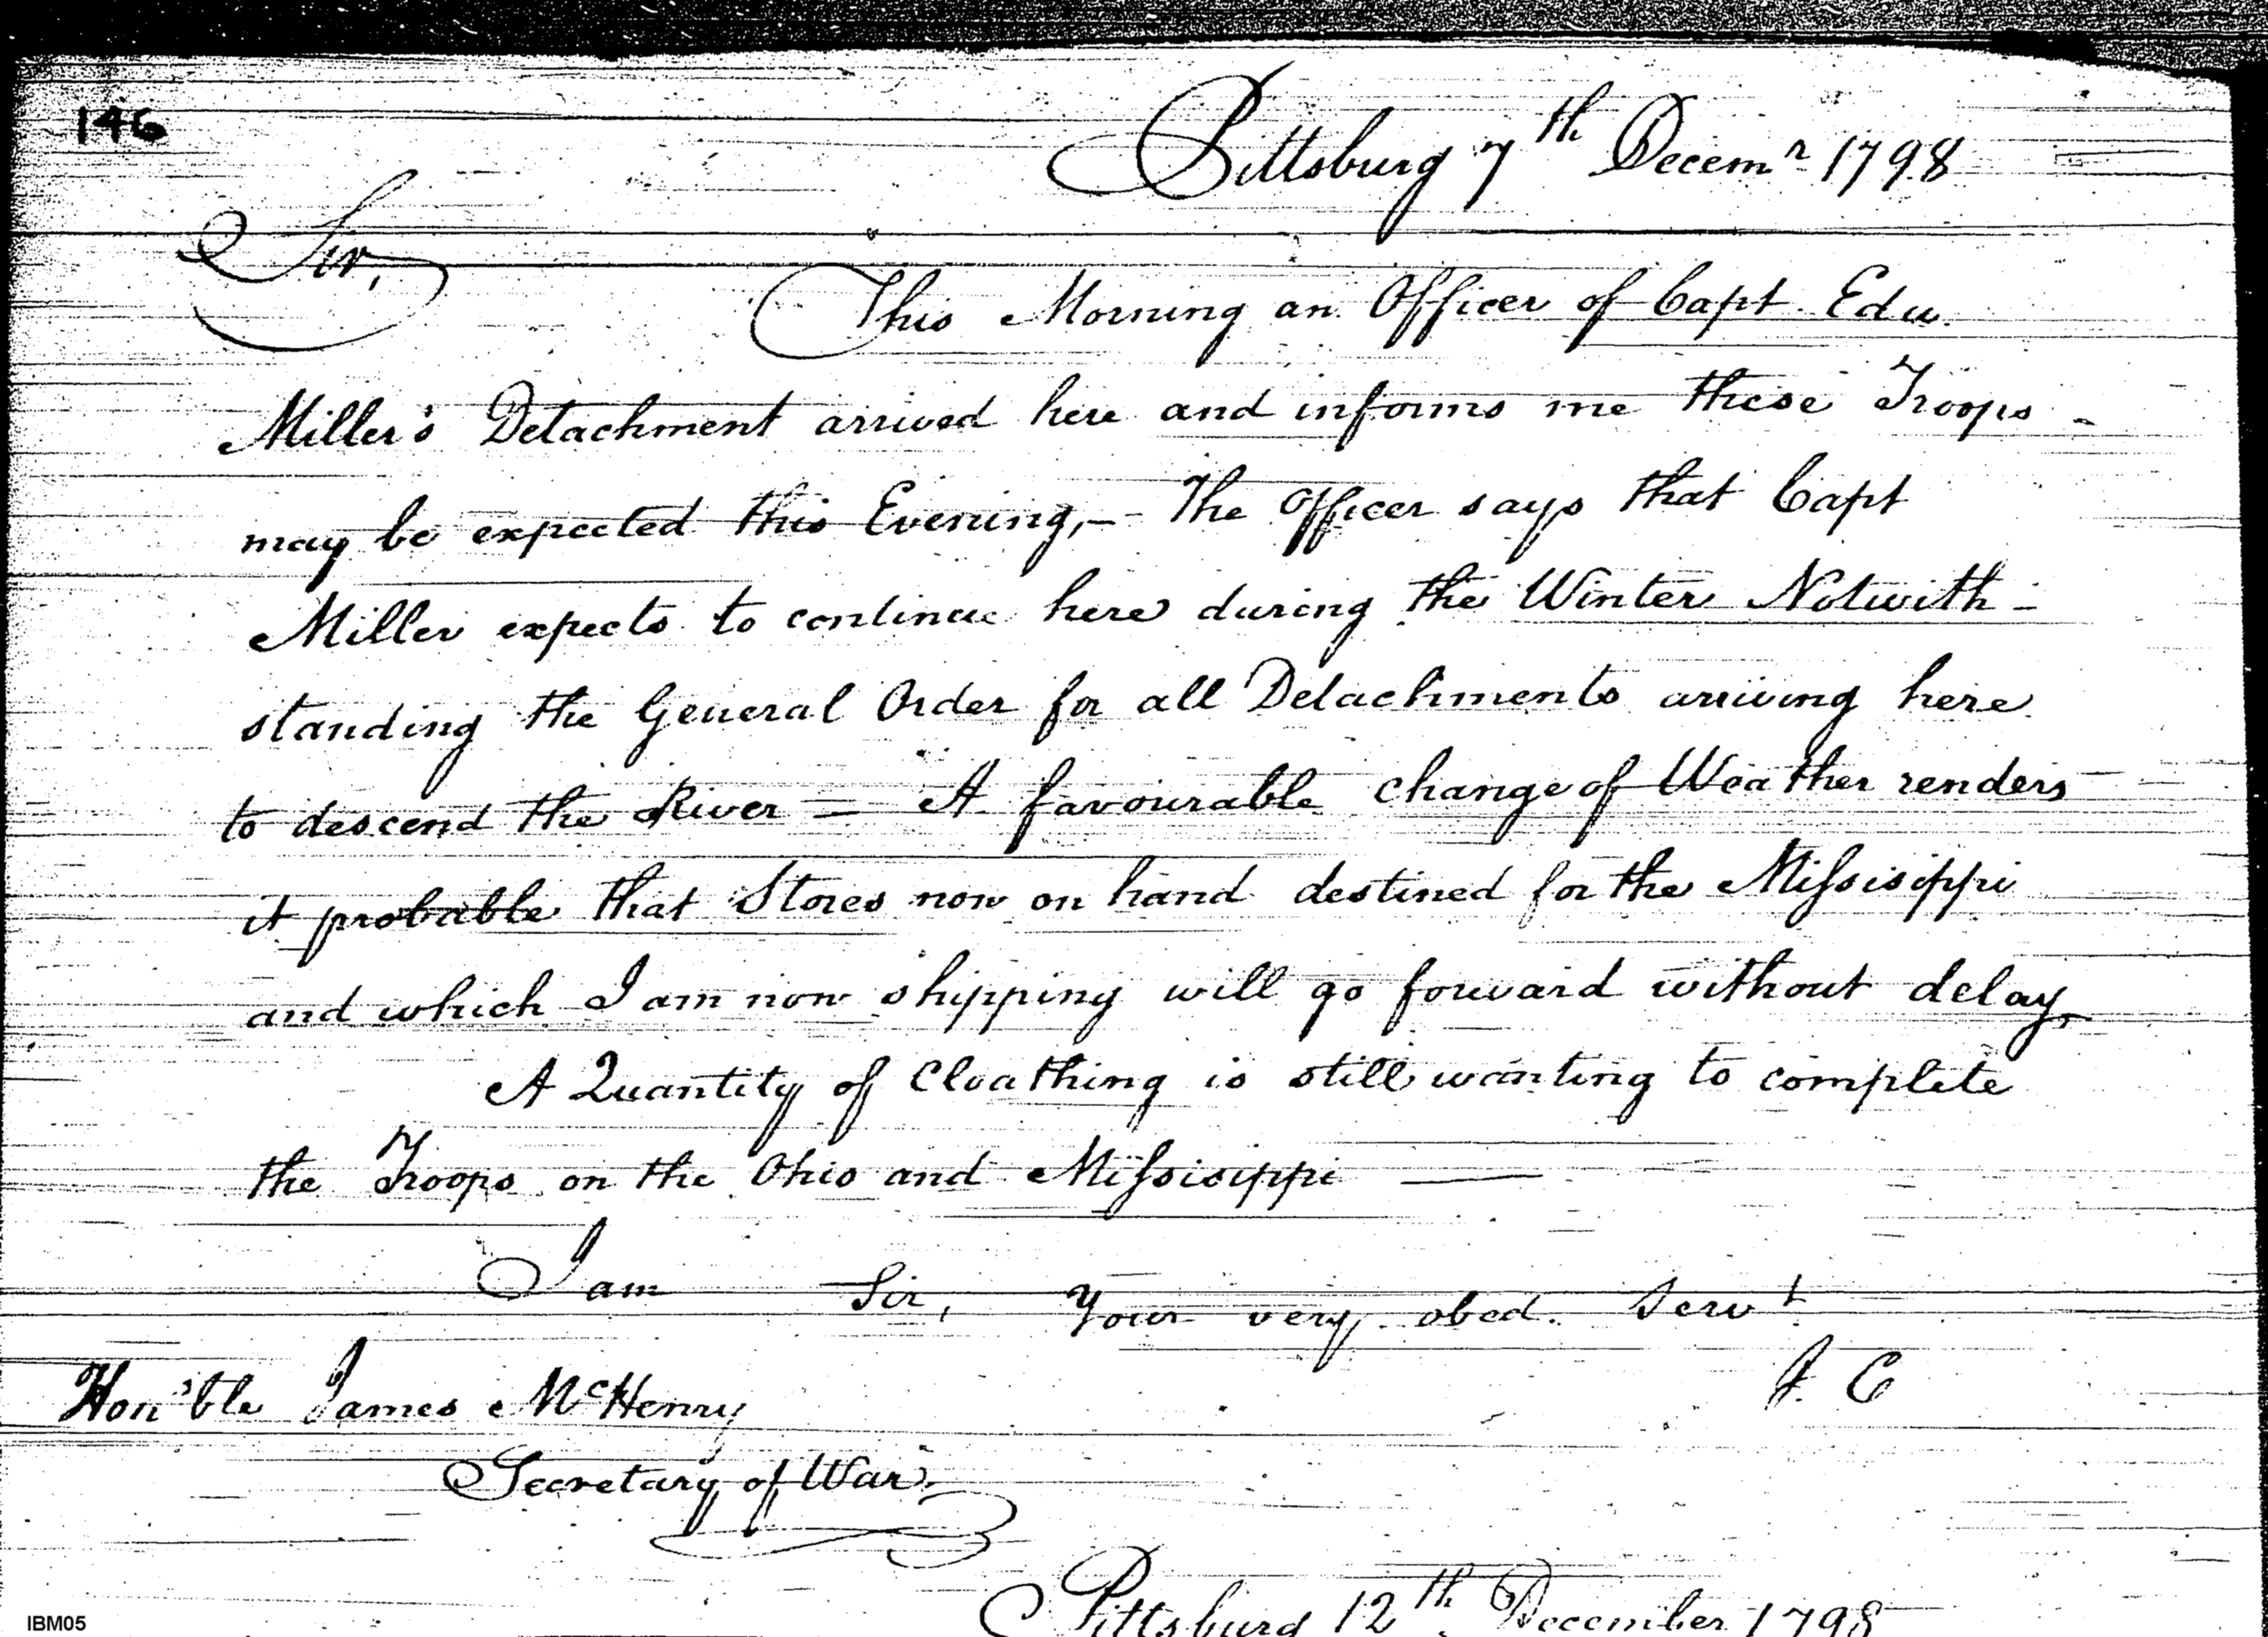 146
Pittsburg 7th Decemr 1798
Sir,
This Morning an Officer of Capt Edw.
Miller's Detachment arrived here and informs me these Troops -
may be expected this Evening, - The Officer says that Capt
Miller expects to continue here during the Winter Notwith -
standing the General Order for all Detachments arriving here
to descend the River — A favourable change of Weather renders
it probable that Stores now on hand destined for the Missisippi
and which I am now shipping will go forward without delay,
A Quantity of Cloathing is still wanting to complete
the Troops on the Ohio and Missisippi —
I am Sir, Your very obed. Servt
I. C
Hon'ble James McHenry
Secretary of War.
Pittsburg 12th December 1798
IBM05